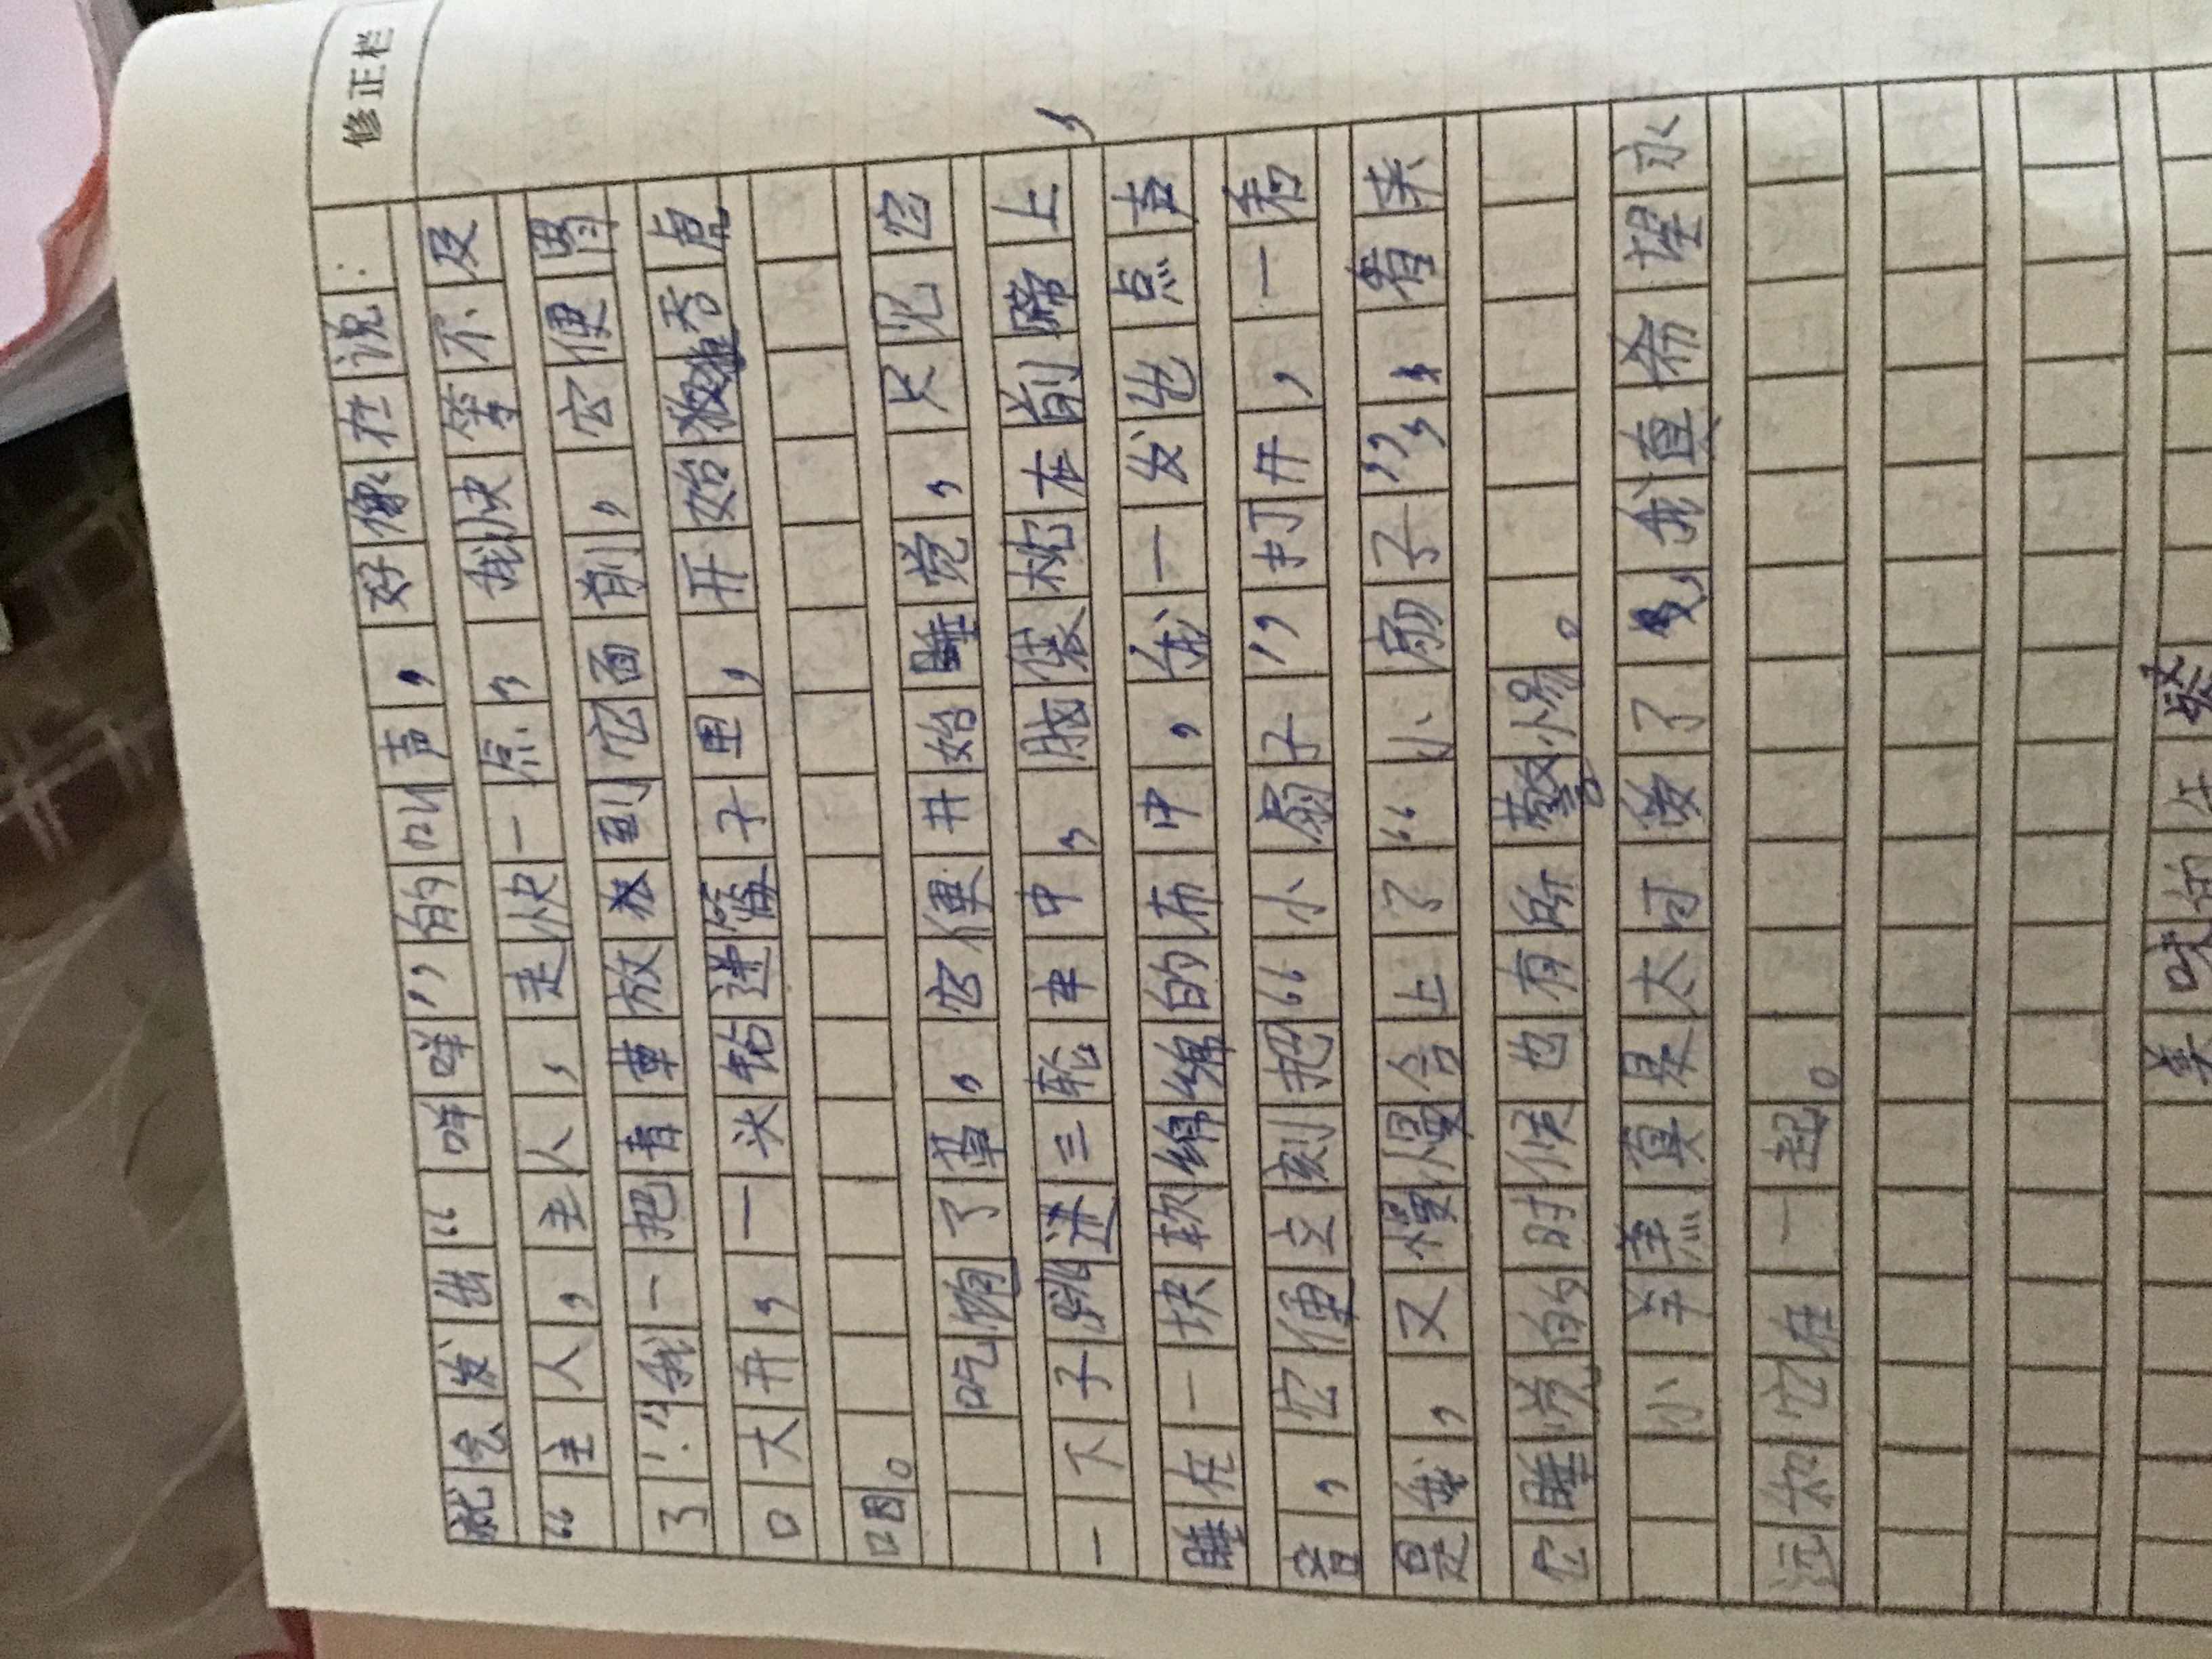 修正栏
就会发出“咩咩”的叫声，好像在说：
“主人，主人，走快一点，我快等不及
了！”我一把青草放到它面前，它便胃
口大开，一头钻进篮子里，开始狼吞虎
咽。
吃饱了草，它便开始睡觉，只见它
一下子跳进三轮车中，脑袋枕在前蹄上，
睡在一块软绵绵的布中，我一发出点声
音，它便立刻把“小扇子”打开，一看
是我，又慢慢合上了“小扇子”，看来
它睡觉的时候也有所警惕。
小羊羔真是太可爱了，我真希望永
远和它在一起。
美味的